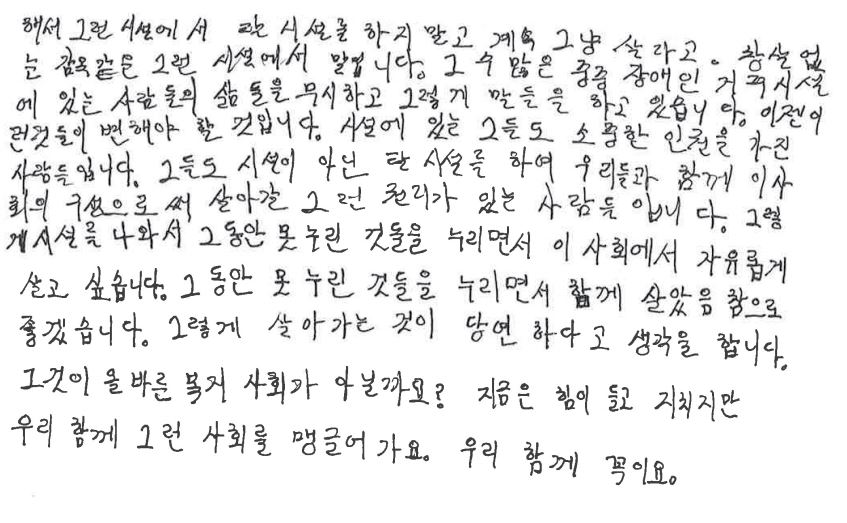 해서 그런 시설에서 탄 시설를 하지 말고 계속 그냥 살라고. 창살 없
는 감옥같은 그런 시설에서 말입니다. 그 수 많은 중증 장애인 거주시설
에 있는 사람들의 삶들을 무시하고 그렇게 말들을 하고 있습니다. 이젠 이
런것들이 변해야 할 것입니다. 시설에 있는 그들도 소중한 인권을 가진
사람들입니다. 그들도 시설이 아닌 탄 시설를 하여 우리들과 함께 이사
회의 구성으로써 살아갈 그런 권리가 있는 사람들 입니다. 그렇
게 시설를 나와서 그동안 못누린 것들을 누리면서 이 사회에서 자유롭게
살고 싶습니다. 그동안 못 누린 것들을 누리면서 함께 살았음 참으로
좋겠습니다. 그렇게 살아가는 것이 당연 하다고 생각을 합니다.
그것이 올바른 복지 사회가 아닐까요? 지금은 힘이 들고 지치지만
우리 함께 그런 사회를 맹글어 가요. 우리 함께 꼭이요.